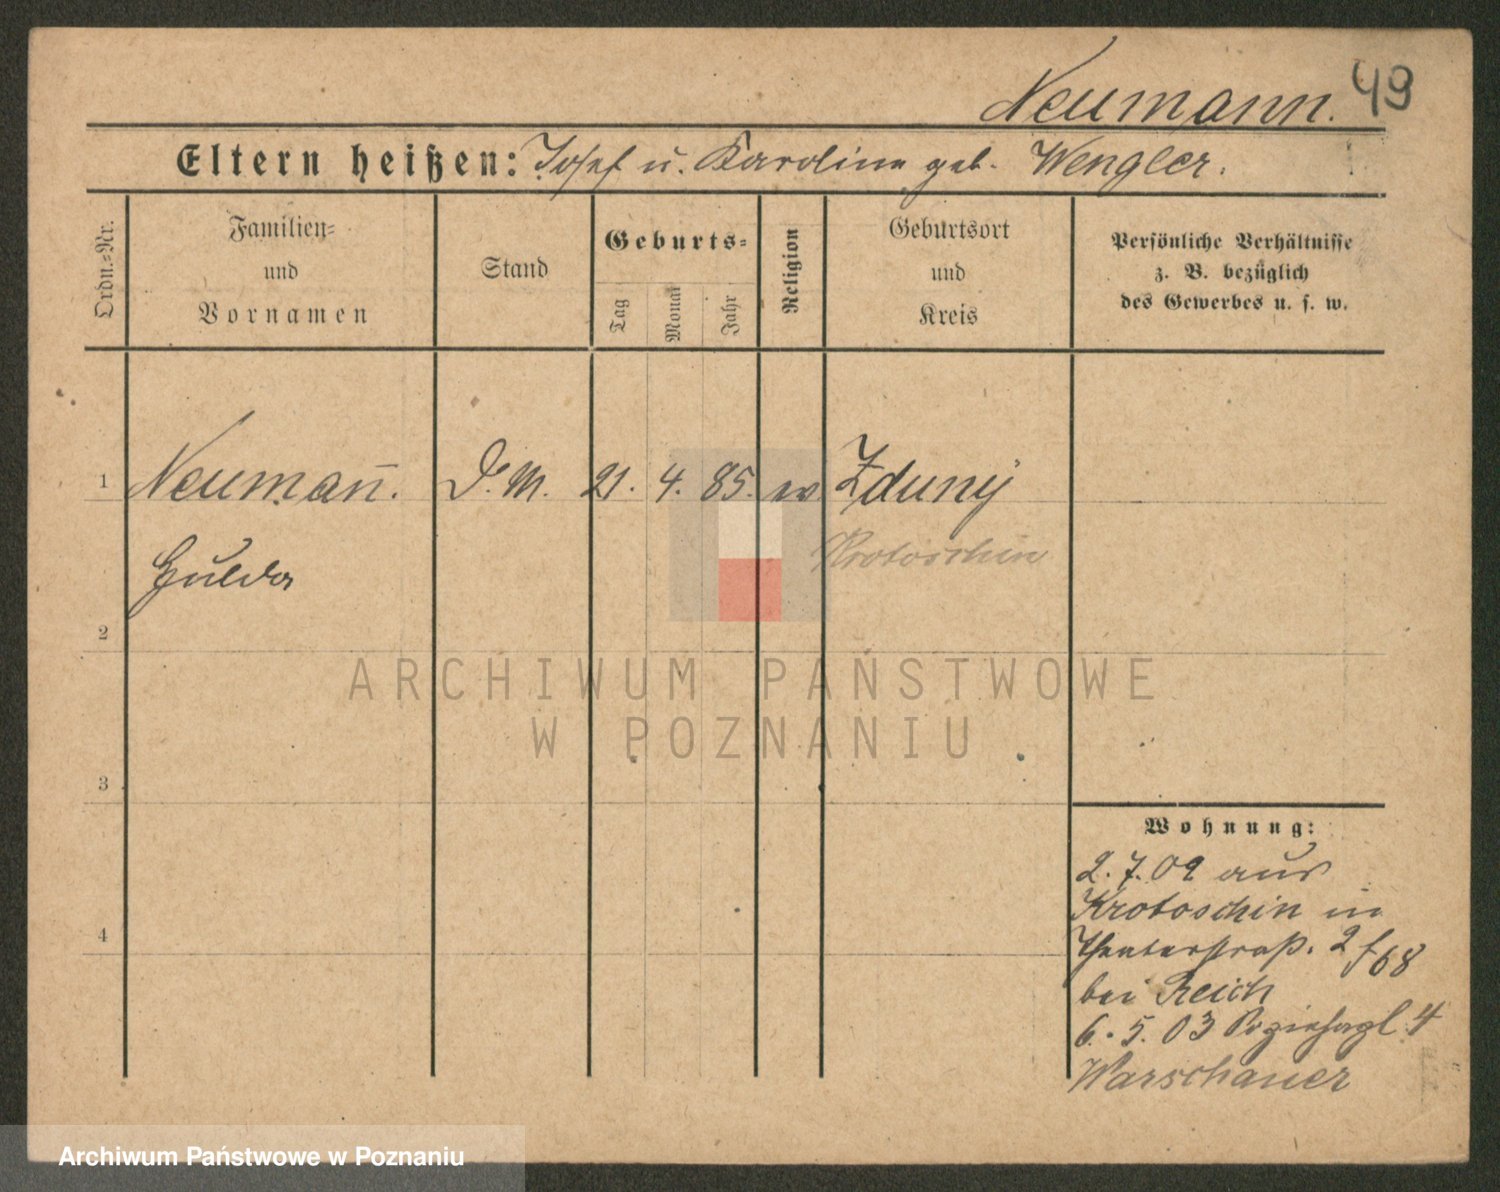 Neumann. 49
Eltern heißen: Josef u. Karoline geb. Wengler.
Ordn.-Nr.
Familien-
und
Vornamen
Stand
Geburts-
Tag
Monat
Jahr
Religion
Geburtsort
und
Kreis
Persönliche Verhältnisse
z. B. bezüglich
des Gewerbes u. s. w.
1 Neumañ. D. M. 21. 4. 85. ev Zduny
Krotoschin
Hulda
2
ARCHIWUM PAŃSTWOWE
W POZNANIU
3
Wohnung:
2. 7. 02 aus
Krotoschin in
Theaterstraß. 2 f 68
bei Reich
4
6. 5. 03 4
Warschauer
Archiwum Państwowe w Poznaniu